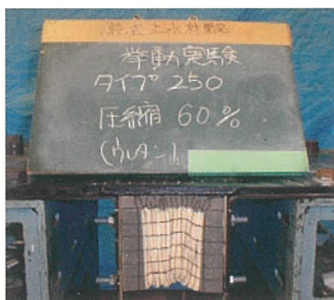 挙動実験
タイプ 250
圧縮 60%
(ウレタン)